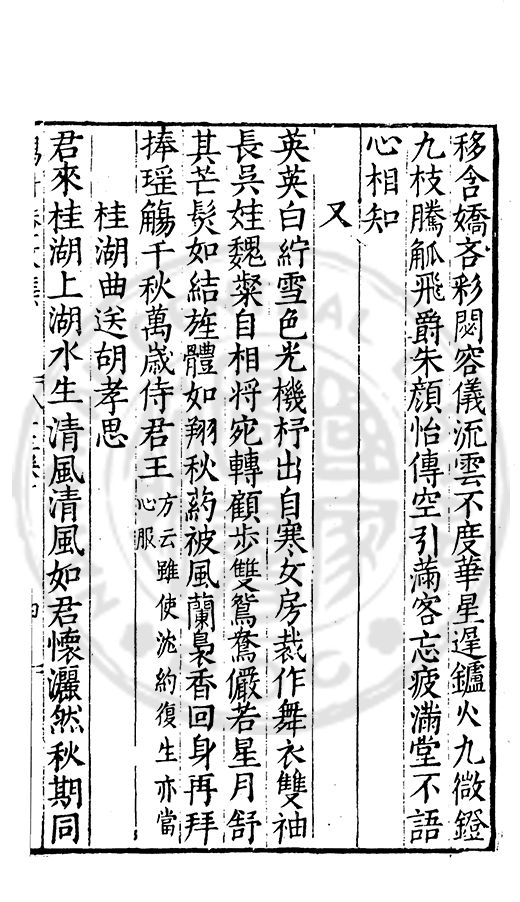 移含嬌吝彩閟容儀流雲不度華星遲鑪火九微鐙
九枝騰觚飛爵朱顏怡傳空引滿客忘疲滿堂不語
心相知
又
英英白紵雪色光機杼出自寒女房裁作舞衣雙袖
長吳娃魏粲自相將宛轉顧步雙鴛鴦儼若星月舒
其芒髮如結旌體如翔秋約被風蘭裊香回身再拜
捧瑶觴千秋萬歲侍君王方云雖使沈約復生亦當
心服
桂湖曲送胡孝思
君來桂湖上湖水生清風清風如君懷灑然秋期同